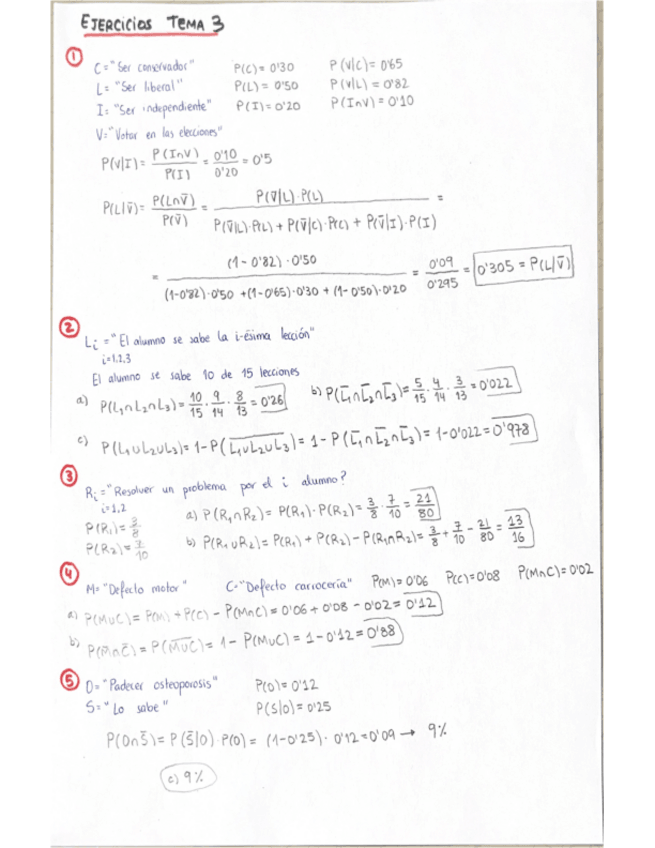 EJERCICIOS TEMA 3
1
C="Ser conservador" P(C)=0'30 P(V|C)=0'65
L="Ser liberal" P(L)=0'50 P(V|L)=0'82
I="Ser independiente" P(I)=0'20 P(I∩V)=0'10
V="Votar en las elecciones"
P(V|I)= P(I∩V)/P(I) = 0'10/0'20 = 0'5
P(L|V̄)= P(L∩V̄)/P(V̄) = P(V̄|L)·P(L)/P(V̄|L)·P(L) + P(V̄|C)·P(C) + P(V̄|I)·P(I) =
= (1-0'82)·0'50/(1-0'82)·0'50 +(1-0'65)·0'30 +(1-0'50)·0'20 = 0'09/0'295 = 0'305 = P(L|V̄)
2
Li ="El alumno se sabe la i-ésima lección"
i=1,2,3
El alumno se sabe 10 de 15 lecciones
a) P(L₁∩L₂∩L₃)= 10/15 · 9/14 · 8/13 = 0'26 b) P(L̄₁∩L̄₂∩L̄₃)= 5/15 · 4/14 · 3/13 = 0'022
c) P(L₁∪L₂∪L₃)= 1-P(L₁∪L₂∪L₃)‾ = 1 - P(L̄₁∩L̄₂∩L̄₃)= 1-0'022= 0'978
3
Ri="Resolver un problema por el i alumno?
i=1,2
P(R₁)= 3/8 a) P(R₁∩R₂)= P(R₁)·P(R₂)= 3/8 · 7/10 = 21/80
P(R₂)= 7/10 b) P(R₁∪R₂)= P(R₁)+ P(R₂)- P(R₁∩R₂)= 3/8 + 7/10 - 21/80 = 13/16
4
M="Defecto motor" C="Defecto carrocería" P(M)=0'06 P(C)=0'08 P(M∩C)=0'02
a) P(M∪C)= P(M)+P(C) - P(M∩C)= 0'06+0'08-0'02= 0'12
b) P(M̄∩C̄)= P(M∪C)‾ = 1- P(M∪C)= 1-0'12= 0'88
5
O="Padecer osteoporosis" P(O)=0'12
S="Lo sabe" P(S|O)=0'25
P(O∩S̄)= P(S̄|O)·P(O)= (1-0'25)·0'12=0'09 → 9%
c) 9%